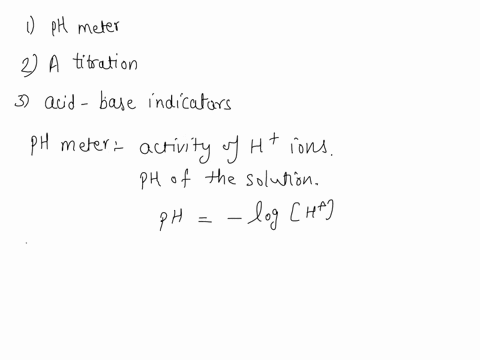 1) pH meter
2) A titration
3) acid - base indicators
PH meter:- activity of H+ ions.
PH of the solution.
PH = - log [H+]